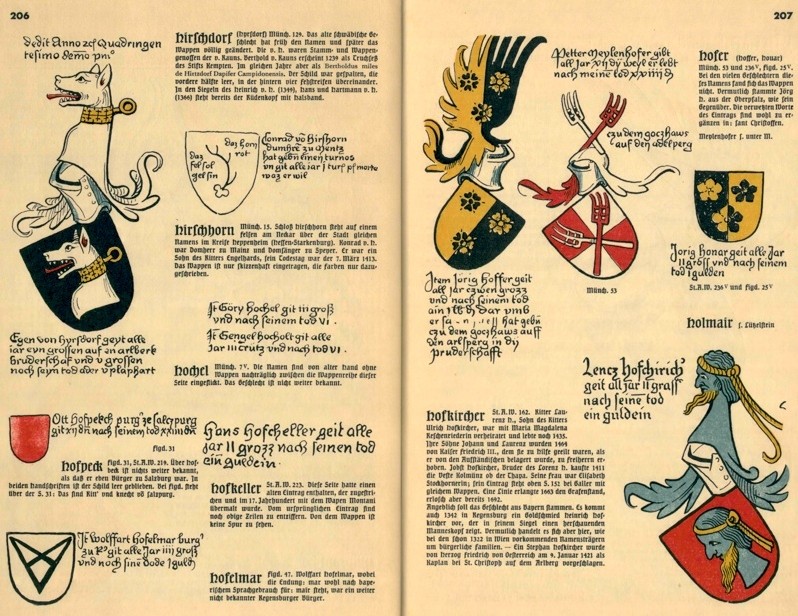 206
dedit Anno
Quadringen
tesimo
hirschdorf (hyrsdorf) Münch. 129. Das alte schwäbische Ge-
schlecht hat früh den Namen und später das
Wappen völlig geändert. Die v. h. waren Stamm- und Wappen-
genossen der v. Rauns. Berthold v. Rauns erscheint 1239 als Truchseß
des Stifts Kempten. Im gleichen Jahre aber als Bertholdus miles
de Hirtsdorf Dapifer Campidonensis. Der Schild war gespalten, die
vordere Hälfte leer, in der hintern vier Feldstreifen übereinander.
In den Siegeln des Heinrich v. h. (1349), Hans und Hartmann v. h.
(1366) steht bereits der Rüdenkopf mit Halsband.
daz
fel sol
gel sin
daz horn
rot
Conrad vo hirshorn
dumhre zu Mentz
hat gebn einen turnos
un git alle iar
waz er wil
hirschhorn Münch. 15. Schloß Hirschhorn steht auf einem
Felsen am Neckar über der Stadt gleichen
Namens im Kreise Heppenheim (Hessen-Starkenburg). Konrad v. h.
war Domherr zu Mainz und Domsänger zu Speyer. Er war ein
Sohn des Ritters Engelhards, sein Todestag war der 7. März 1413.
Das Wappen ist nur skizzenhaft eingetragen, die Farben nur dazu-
geschrieben.
Egen von hyrsdorf geyt alle
iar
grossen auf
arlberk
bruderschaf und v grossen
noch seyn tod ader v plaphart
It Göry hochel git III groß
und nach seinem tod VI.
It Gengel hocholt git alle
jar III crutz und nach tod VI.
hochel Münch. 7V. Die Namen sind von alter Hand ohne
Wappen nachträglich zwischen die Wappenreihe dieser
Seite eingeflickt. Das Geschlecht ist nicht weiter bekannt.
Ott hofpekch purg ze salczpurg
git
nach seinem tod
figd. 31
hofpeck figd. 31, St.A.W. 219. Über Hof-
beck ist nicht weiter bekannt,
als daß er eben Bürger zu Salzburg war. In
beiden Handschriften ist der Schild leer geblieben. Bei figd. steht
über der S. 31: Das sind Rit' und knecht vō salzpurg.
Hans hofcheller geit alle
jar II grozz nach seinen tod
ein guldein.
hofkeller St.A.W. 223. Diese Seite hatte einen
alten Eintrag enthalten, der zugestri-
chen und im 17. Jahrhundert mit dem Wapen Montani
übermalt wurde. Vom ursprünglichen Eintrag sind
noch obige Zeilen zu entziffern. Von dem Wappen ist
keine Spur zu sehen.
It Wolffart hofelmar burg'
zu
git alle Jar IIII groß
und noch sine dode I guld.
hofelmar figd. 47. Wolffart hofelmar, wobei
die Endung: mar wohl nach bayerischem
Sprachgebrauch für: mair steht, war ein weiter
nicht bekannter Regensburger Bürger.
207
Petter Meylenhofer gibt
all Jar
dy weyl er lebt
nach meinē tod
czu dem goczhaws
auf den adelperg
hofer (hoffer, honar)
Münch. 53 und 236V, figd. 25V.
Bei den vielen Geschlechtern die-
ses Namens fand sich das Wappen
nicht. Vermutlich stammte Jörg
h. aus der Oberpfalz, wie sein
Gegenüber. Die verwetzte Worte
des Eintrags sind wohl zu er-
gänzen in: sant Christoffen.
Meylenhofer s. unter M.
Münch. 53
Jtem Jörig hoffer geit
all jar czwen grozz
und nach seinem tod
ain
dar umb
er sa
hat gebn
czu dem goczhaws auff
den arlsperg in dy
pruderschafft
Jorig honar geit alle Jar
II gross vnd nach seinem
tod I gulden
St.A.W. 236V und figd. 25V
holmair s. Lützelstein
Lencz Hofchirich'
geit all Jar II grass
nach seinē tod
ein guldein
hofkircher St.A.W. 162. Ritter Lau-
renz h., Sohn des Ritters
Ulrich Hofkircher, war mit Maria Magdalena
verheiratet und lebte noch 1435.
Ihre Söhne Johann und Laurenz wurden 1464
von Kaiser Friedrich III., dem sie zu Hilfe geeilt waren, als
er von den Aufständischen belagert wurde, zu Freiherren er-
hoben. Jobst Hofkircher, Bruder des Lorenz h. kaufte 1411
die Veste Kolmünz ob der Thaya. Seine Frau war Elisabeth
Stockhornerin; sein Eintrag steht oben S. 132 bei Galler mit
gleichem Wappen. Eine Linie erlangte 1663 den Grafenstand,
erlosch aber bereits 1692.
Angeblich soll das Geschlecht aus Bayern stammen. Es kommt
auch 1342 in Regensburg ein Goldschmied Heinrich Hof-
kircher vor, der in seinem Siegel einen herschauenden
Mannskopf zeigt. Vermutlich handelt es sich aber hier, wie
bei den schon 1322 in Wien vorkommenden Namensträgern
um bürgerliche Familien. — Ein Stephan Hofkircher wurde
von Herzog Friedrich von Oesterreich am 9. Januar 1421 als
Kaplan bei St. Christoph auf dem Arlberg vorgeschlagen.